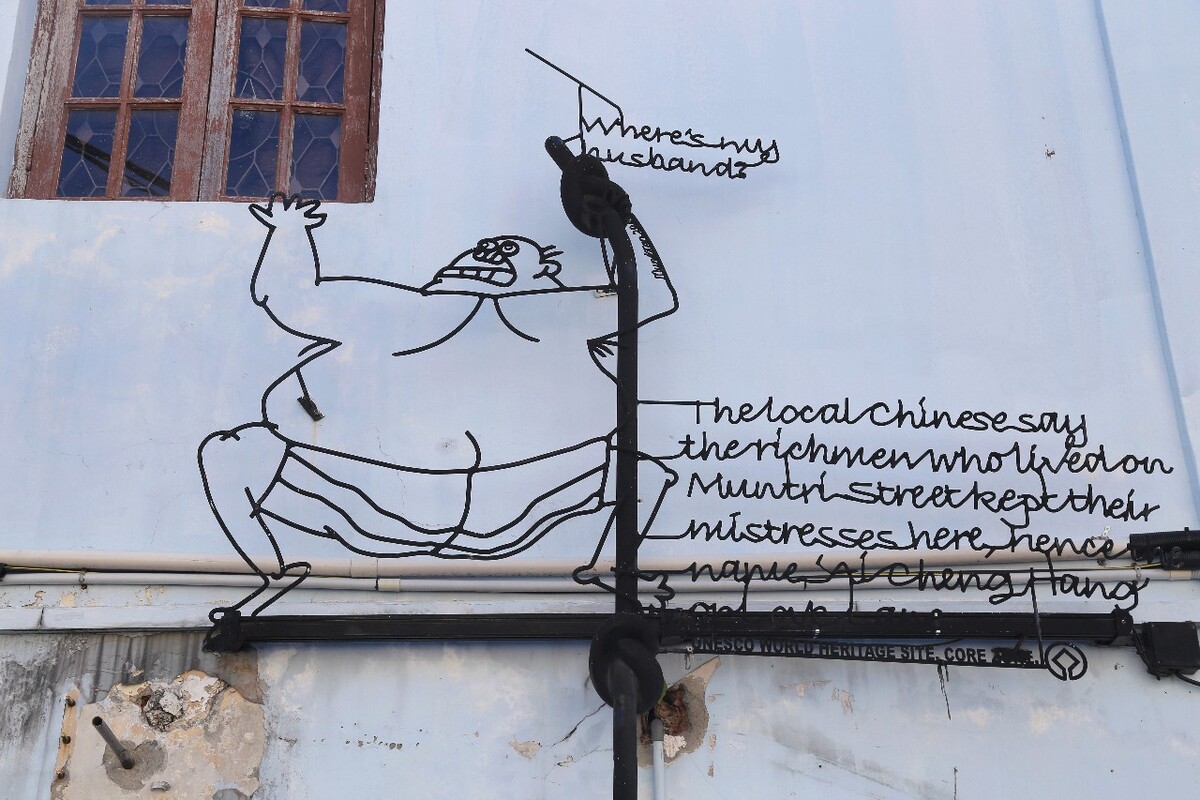 Where's my
husband?
The local Chinese say
the rich men who lived on
Muntri Street kept their
mistresses here, hence
name, 'Ai Cheng Hang
UNESCO WORLD HERITAGE SITE, CORE ZONE.